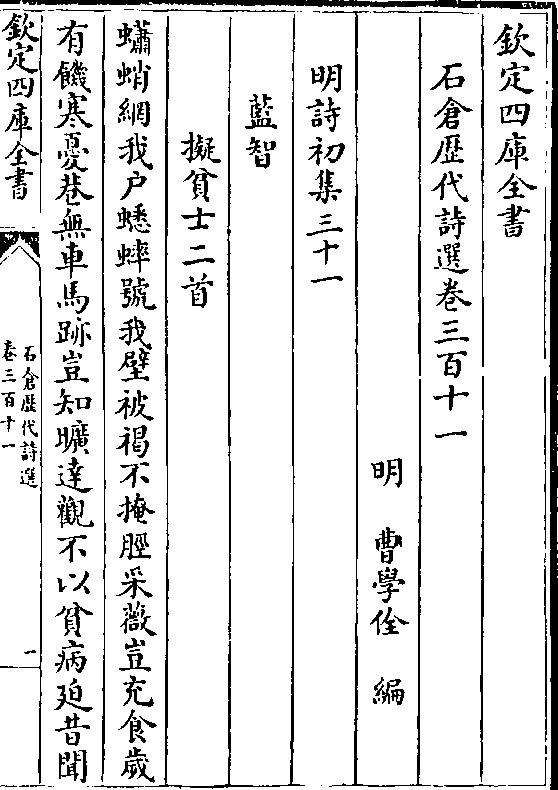 欽定四庫全書
石倉歴代詩選卷三百十一
明　曹學佺　編
明詩初集三十一
藍智
擬貧士二首
蠨蛸網我户蟋蟀號我壁被褐不掩脛采薇豈充食歲
有饑寒憂巷無車馬跡豈知曠達觀不以貧病廹昔聞
欽定四庫全書
石倉歴代詩選
卷三百十一
一